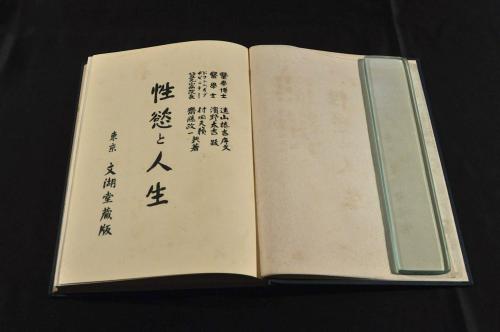 醫學博士 遠山椿吉序文
醫學士
村田天籟
齋藤政一共著
性慾と人生
東京 文湖堂藏版